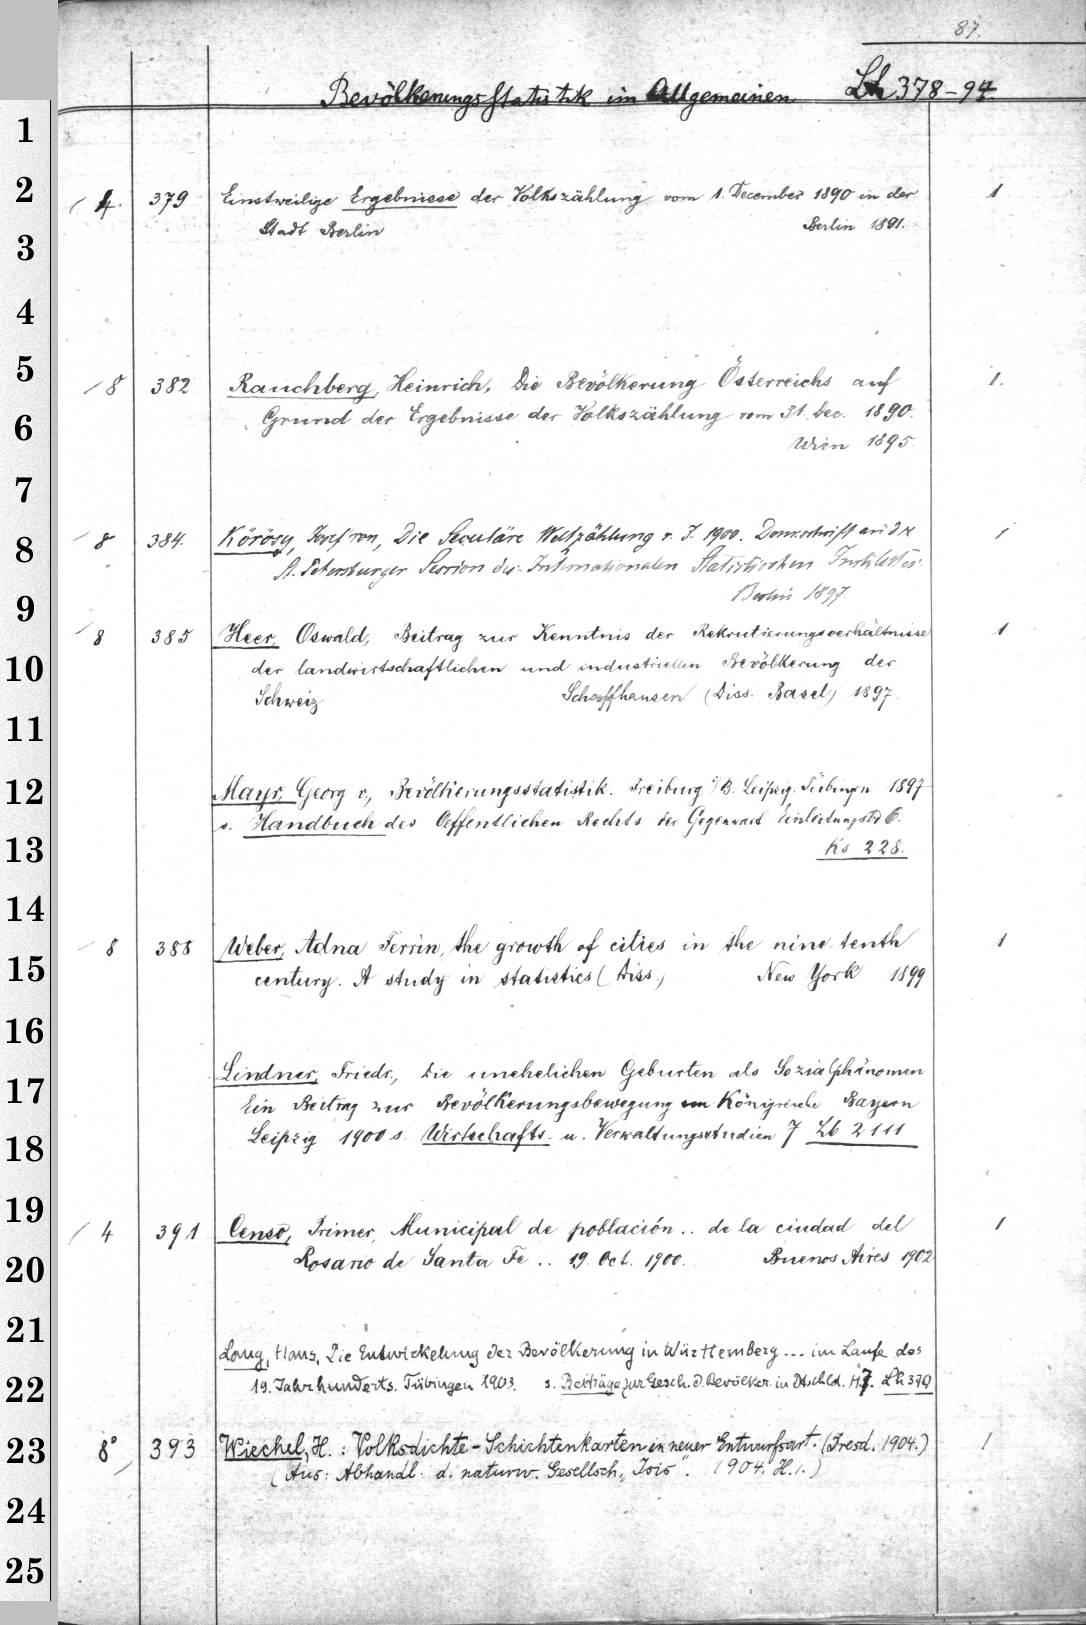 87.
Bevölkerungsstatistik im Allgemeinen Lh 378-94.
1
2
/ 4. 379 Einstweilige Ergebnisse der Volkszählung vom 1. December 1890 in der 1
3
Stadt Berlin Berlin 1891.
4
5
/ 8 382 Rauchberg, Heinrich, Die Bevölkerung Österreichs auf 1.
6
Grund der Ergebnisse der Volkszählung vom 31. Dec. 1890.
Wien 1895.
7
8
/ 8 384. Körösy, Josef von, Die Seculäre Weltzählung v. J. 1900. Denkschrift an die 1
St. Petersburger Session des Internationalen Statistischen Institutes.
9
Berlin 1897.
/ 8 385 Heer, Oswald, Beitrag zur Kenntnis der Rekrutierungsverhältnisse 1
10
der landwirtschaftlichen und industriellen Bevölkerung der
Schweiz Schaffhausen (Diss. Basel) 1897.
11
12
Mayr, Georg v., Bevölkerungsstatistik. Freiburg i/B. Leipzig. Tübingen 1897
s. Handbuch des Oeffentlichen Rechts der Gegenwart Einleitungsbd 6.
13
Ks 228.
14
/ 8 388 Weber, Adna Ferrin, the growth of cities in the nine tenth 1
15
century. A study in statistics (Diss.) New York 1899
16
17
Lindner, Friedr., Die unehelichen Geburten als Sozialphänomen
Ein Beitrag zur Bevölkerungsbewegung im Königreiche Bayern
18
Leipzig 1900 s. Wirtschafts- u. Verwaltungsstudien 7 Lb 2111
19
/ 4 391 Censo, Primer, Municipal de población .. de la ciudad del 1
20
Rosario de Santa Fe .. 19. Oct. 1900. Buenos Aires 1902
21
Losug, Hans, Die Entwickelung der Bevölkerung in Württemberg ... im Laufe des
22
19. Jahrhunderts. Tübingen 1903. s. Beiträge zur Gesch. d. Bevölker. in Dtschld. H 7. Lh 379
23
8° 393 Wiechel, H.: Volksdichte-Schichtenkarten in neuer Entwurfsart. (Dresd. 1904.) 1
(Aus: Abhandl. d. naturw. Gesellsch. „Isis". 1904. H. 1.)
24
25